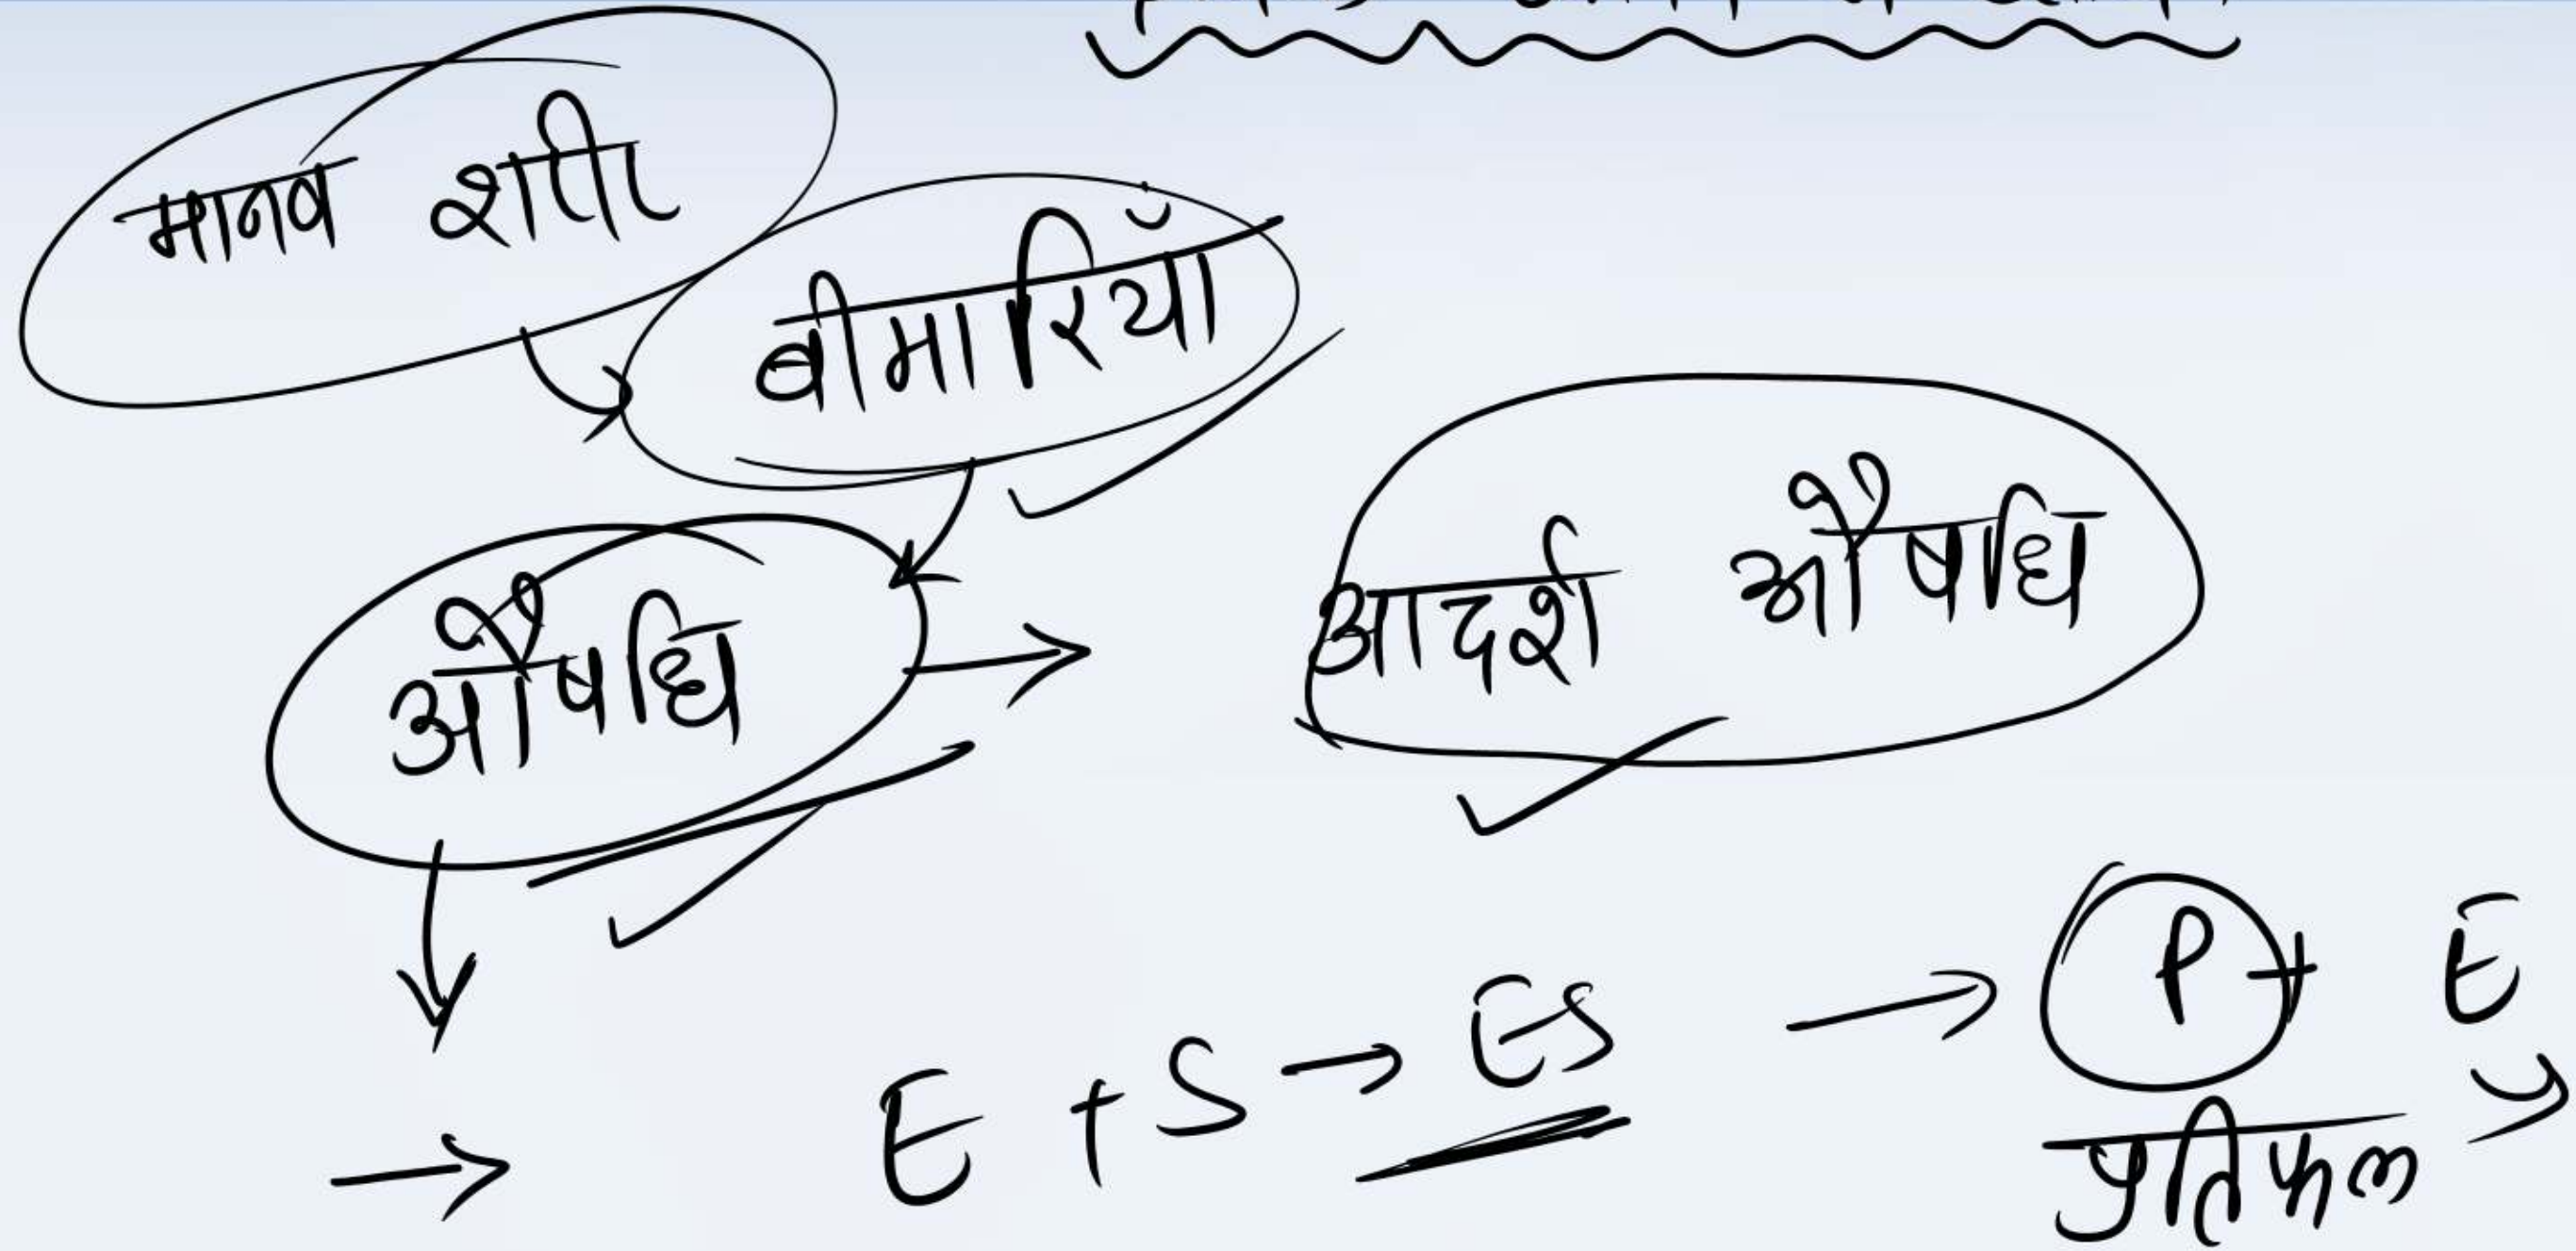 मानव शरीर
बीमारियाँ
औषधि → आदर्श औषधि
→ E + S → ES → P + E
प्रतिफल